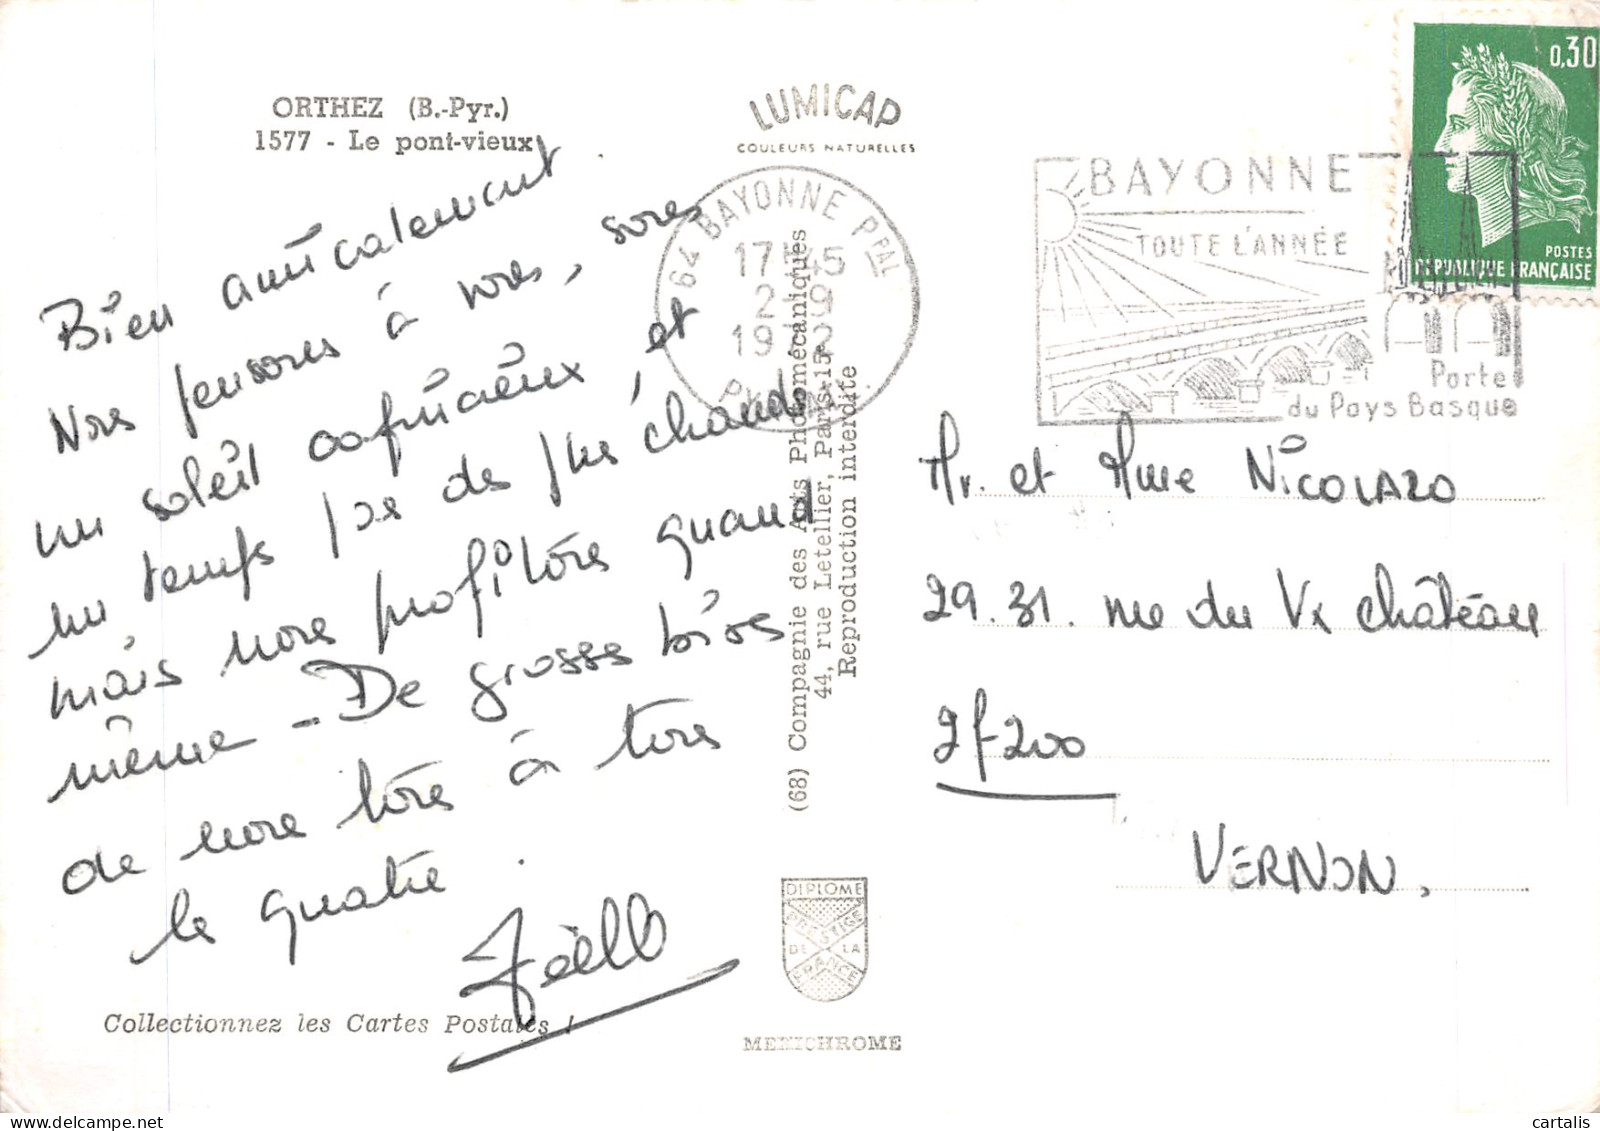 ORTHEZ (B.-Pyr.)
1577 - Le pont-vieux
Bien amicalement.
Nous pensons à vous, sous
un soleil capricieux, et
un temps pas des plus chauds
mais nous profitons quand
même - De grosses bises
de nous tous à tous
les quatre.
Joëlle
Collectionnez les Cartes Postales !
LUMICAP
COULEURS NATURELLES
64 BAYONNE PPAL
17H45
2-9
1972
(68) Compagnie des Arts Photomécaniques
44, rue Letellier, Paris-15e
Reproduction interdite
DIPLOME
PRESTIGE
DE LA
FRANCE
MEXICHROME
BAYONNE
TOUTE L'ANNÉE
Porte
du Pays Basque
0,30
POSTES
RÉPUBLIQUE FRANÇAISE
Mr. et Mme NICOLAZO
29.31. rue du Vx château
27200
VERNON.
cartalis